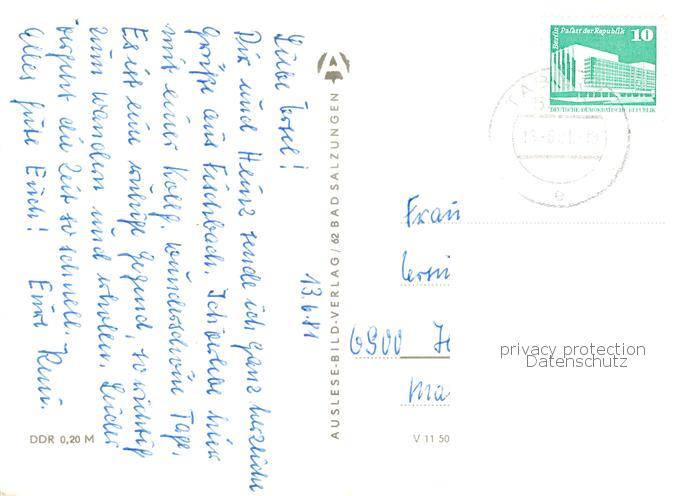 13.6.81
Liebe Ursel!
Dir und Heinz sende ich ganz herzliche
Grüße aus Fischbach. Ich verlebe hier
mit einer Kolln. wunderschöne Tage.
Es ist eine ruhige Gegend, so richtig
zum wandern und erholen. Leider
vergeht die Zeit so schnell.
Alles Gute Euch! Eure Reni.
AUSLESE-BILD-VERLAG / 62 BAD SALZUNGEN
DDR 0,20 M
V 11 50
Berlin Palast der Republik
10
DEUTSCHE DEMOKRATISCHE REPUBLIK
Frau
6900
privacy protection
Datenschutz